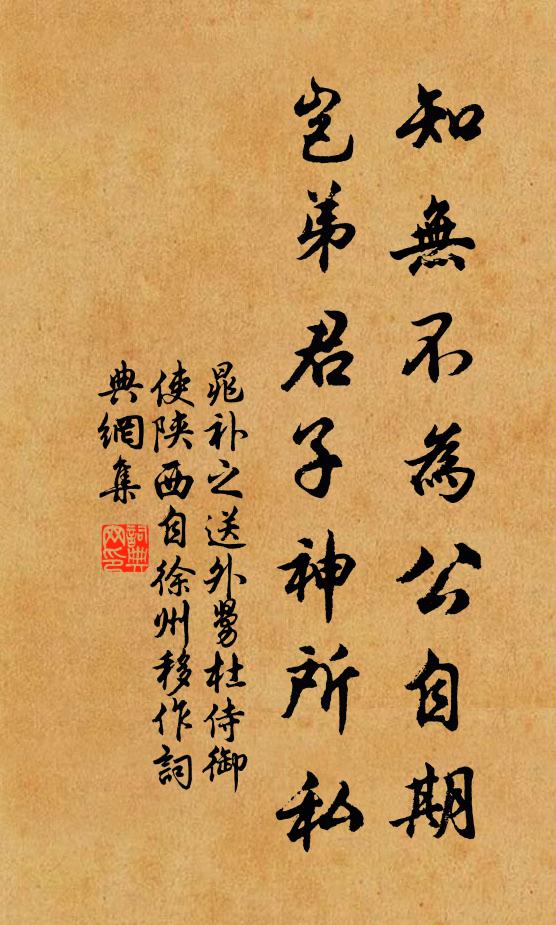 知無不為公自期
豈弟君子神所私
晁补之送外舅杜侍御
使陕西自徐州移作詞
典網集
詞典网印